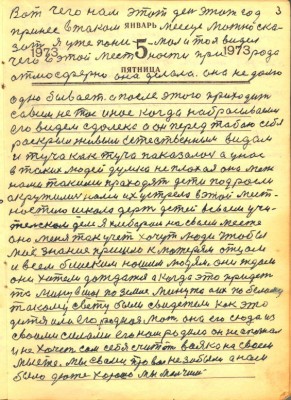 Вот чего нам этот ден этот год 3
принес в таком ЯНВАРЬ месеце Можно ска-
зать я уже пони- 5 мал и тоя видел
1973 1973
чего в этой мест- ности природа
ПЯТНИЦА
атмосферно она делала. она не долго
одно бывает. а после этого приходит
савсем не тое иное когда набрасываеш
его видем сдолека а он перед табою себя
раскрыл живым естественным видом
и туча как туча паказалас а у нас
в таких людей думка не плохая она меж
нами такими праходят дети подросли
окружили их устрела в этой мест-
ностию школа держ детей всвоем учи-
тельском деле Я хлебороб на своем месте
оно меня так учет хочут люди чтобы
мне знание пришло к матери отцам
и всем блиским нашим людям. они ждали
они хотели дождатся а когда это придет
то минувшое по земле минута как по белому
такому свету были свидетели как это
детя или его родная. мат. она его сюда из
своими силами его нам родило он не попал
и не хочет сам себя считат всяко на своем
мысте. мы свами про вас не забыли а нам
было дюже хорошо мы молчим